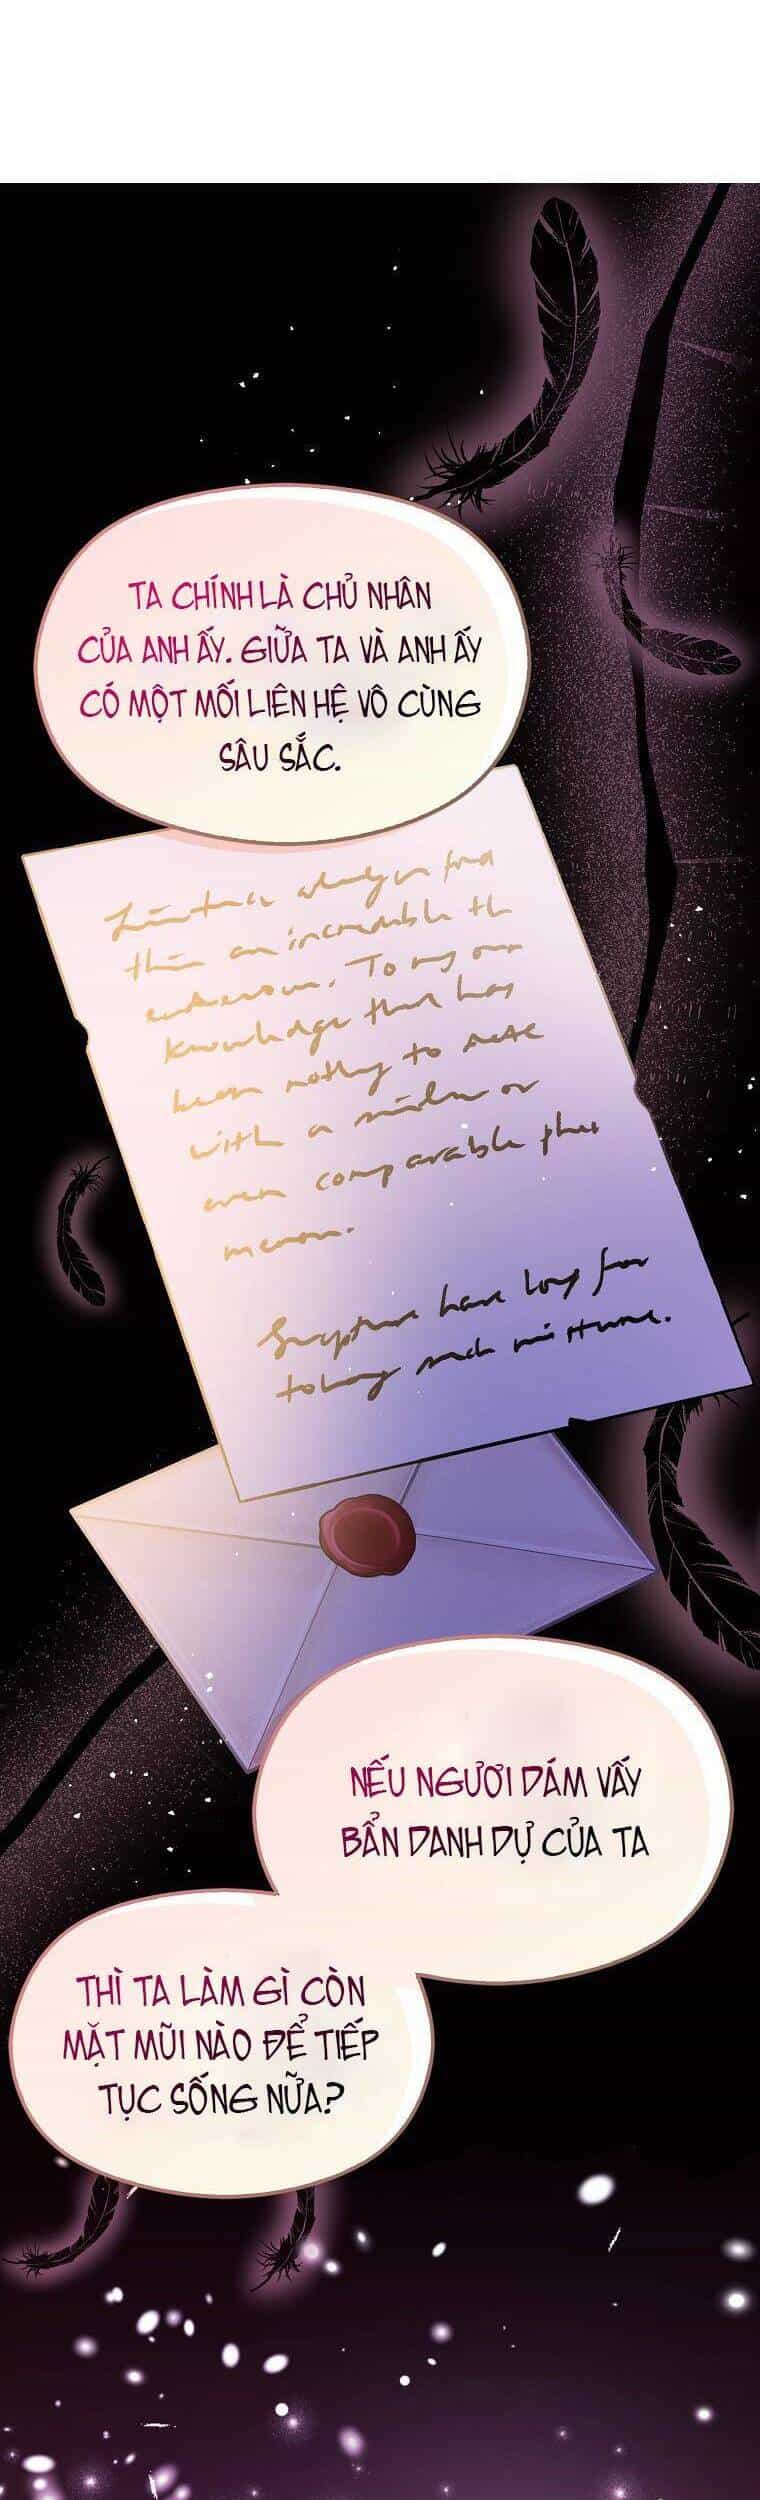 TA CHÍNH LÀ CHỦ NHÂN
CỦA ANH ẤY. GIỮA TA VÀ ANH ẤY
CÓ MỘT MỐI LIÊN HỆ VÔ CÙNG
SÂU SẮC.
an incredible
To my own
knowledge that has
been nothing to
with a or
even comparable
have long
such mixture.
NẾU NGƯƠI DÁM VẤY
BẨN DANH DỰ CỦA TA
THÌ TA LÀM GÌ CÒN
MẶT MŨI NÀO ĐỂ TIẾP
TỤC SỐNG NỮA?